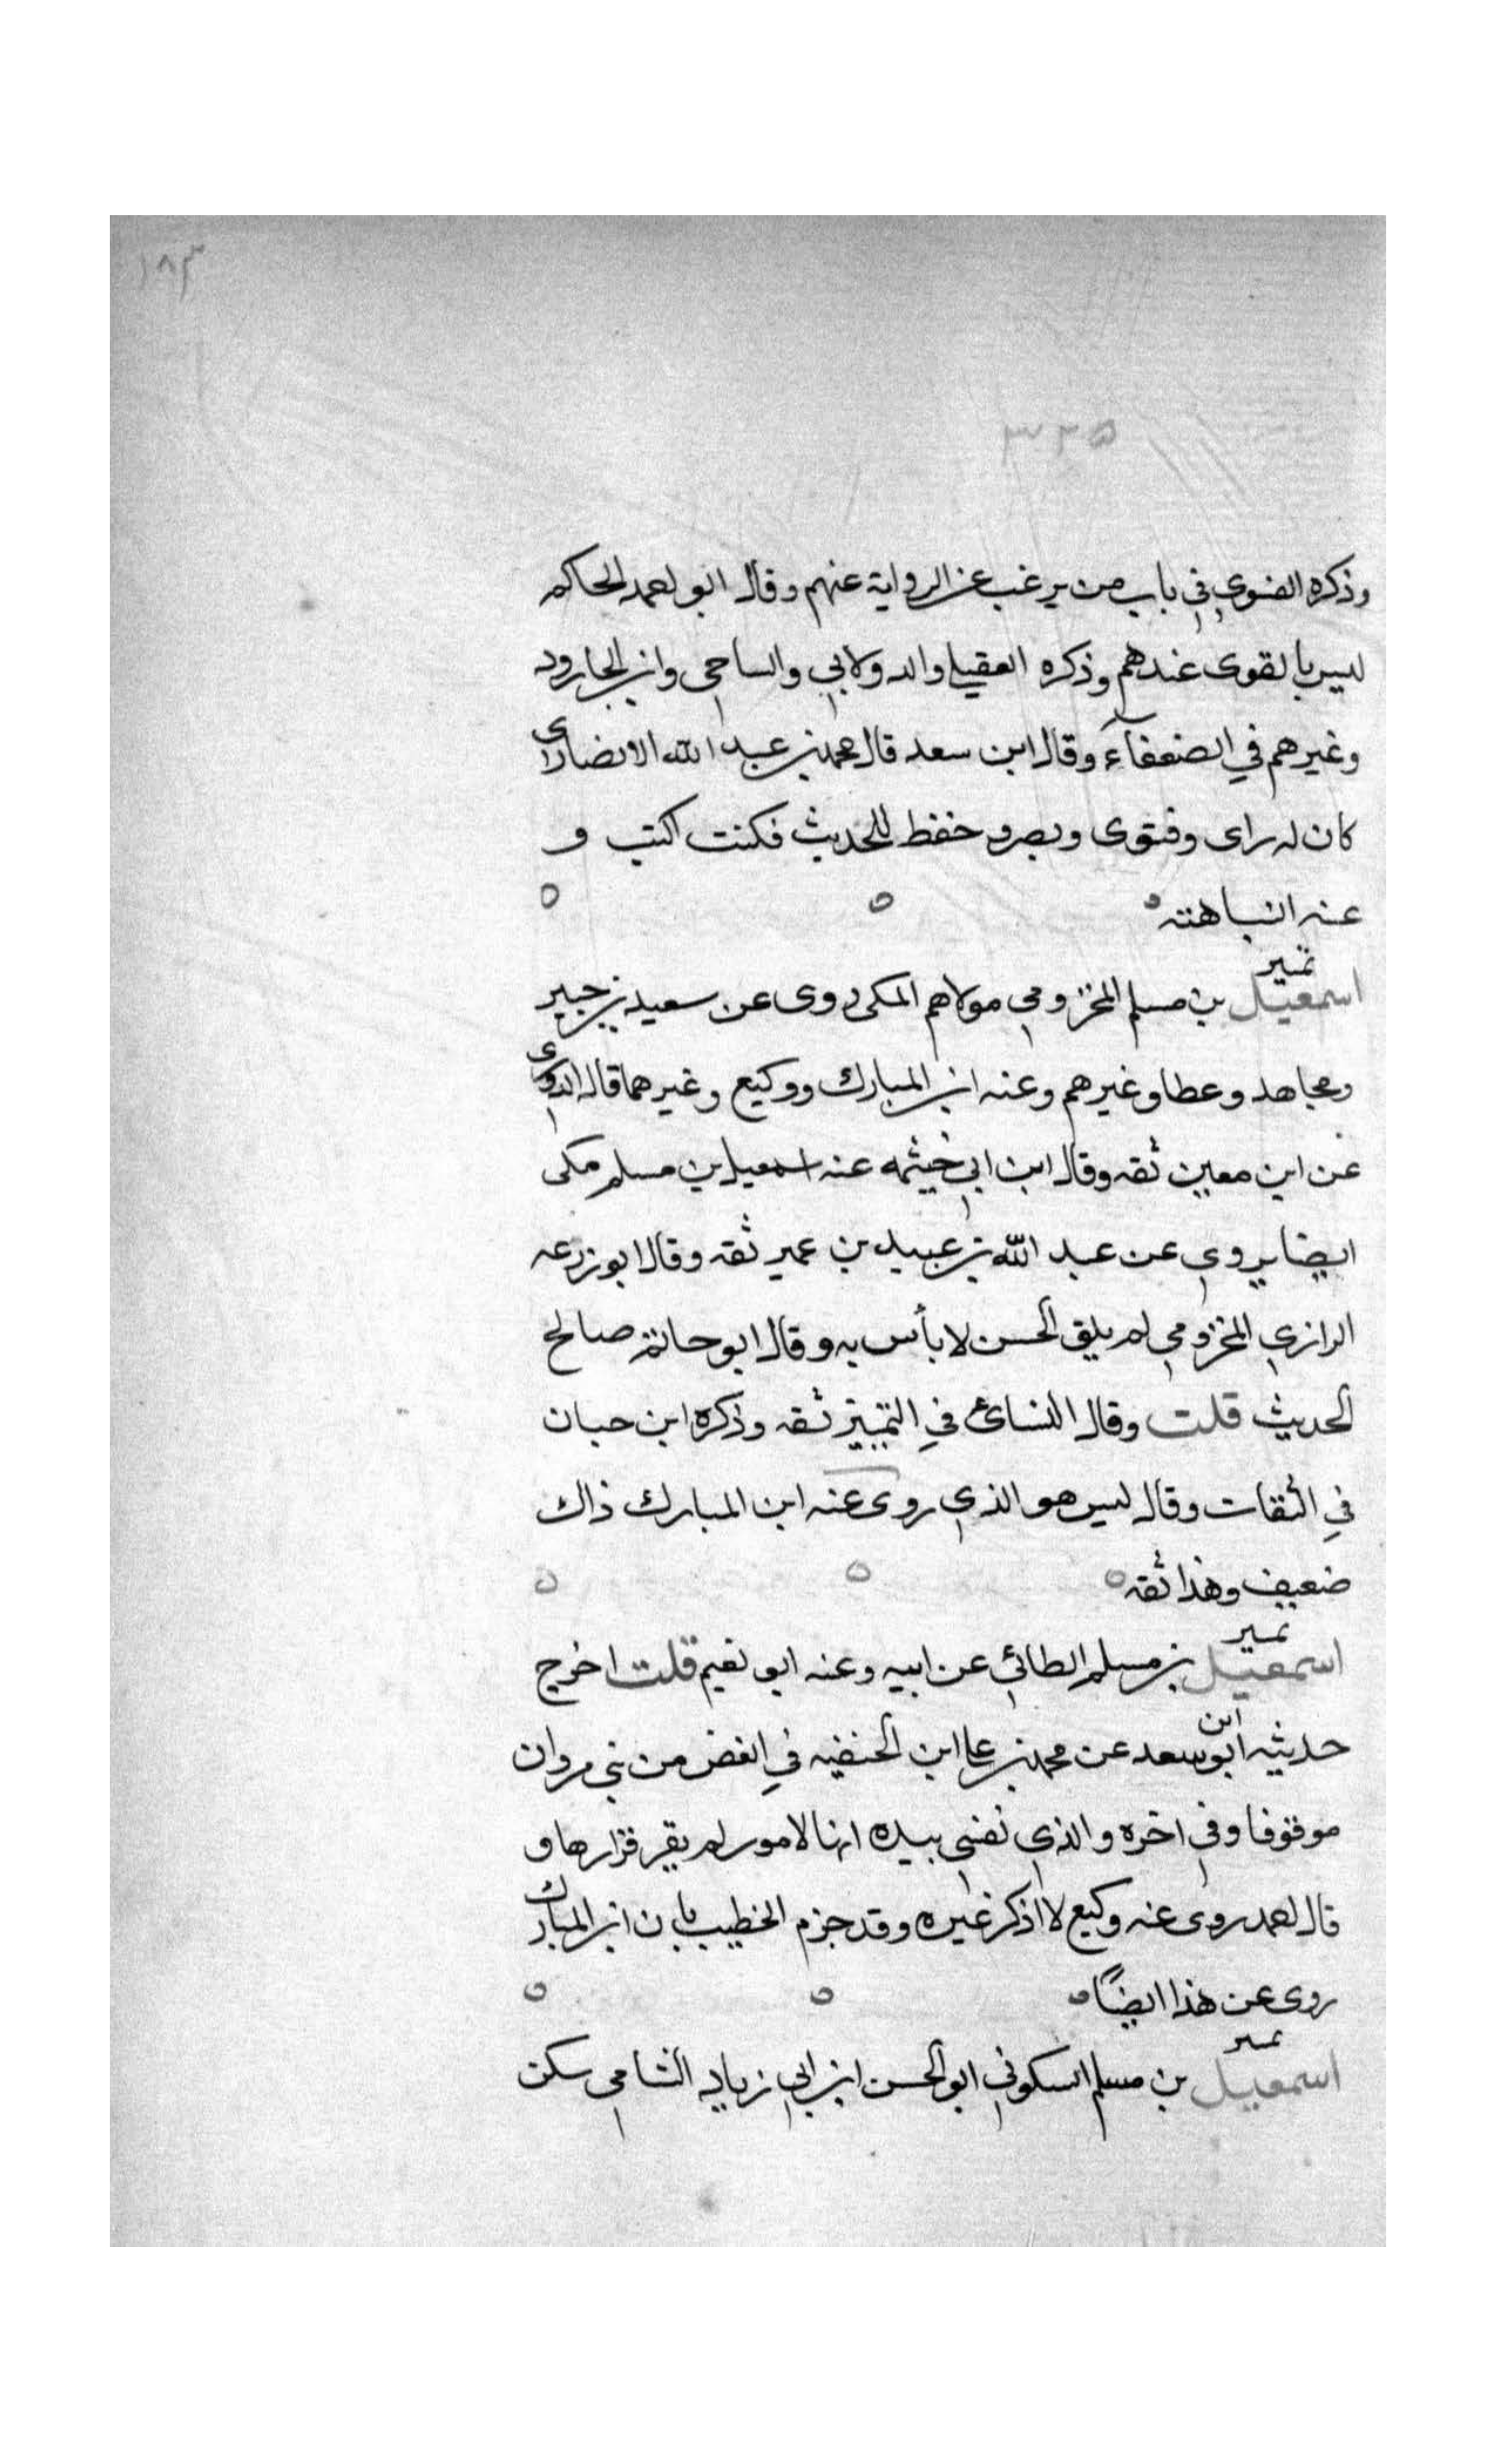 ١٨٣
٣٢٥
وذكره الفسوي في باب من يرغب عن الرواية عنهم وقال ابو احمد الحاكم
ليس بالقوى عندهم وذكره العقيلي والدولابي والساجي وابن الجارود
وغيرهم في الضعفآء وقال ابن سعد قال محمد بن عبد الله الانصارى
كان له راى وفتوى وبصر وحفظ للحديث فكنت اكتب و
عنه النباهته
اسمعيل بن مسلم المخزومي مولاهم المكى روى عن سعيد بن جبير
تمييز
ومجاهد وعطا وغيرهم وعنه ابن المبارك ووكيع وغيرهما قال الدورى
عن ابن معين ثقه وقال ابن ابي خيثمه عنه اسمعيل بن مسلم مكى
ايضا يروي عن عبد الله بن عبيد بن عمير ثقه وقال ابو زرعه
الرازي المخزومي لم يلق الحسن لا بأس به وقال ابو حاتم صالح
الحديث قلت وقال النسائ في التمييز ثقه وذكره ابن حبان
في الثقات وقال ليس هو الذي روى عنه ابن المبارك ذاك
ضعيف وهذا ثقه
تمييز
اسمعيل بن مسلم الطائي عن ابيه وعنه ابو نعيم قلت اخرج
حديثه ابن ابو سعد عن محمد بن على ابن الحنفيه في الغض من بني مروان
موقوفا وفي اخره والذي نفسي بيده انها لامور لم يقر قرارها و
قال احمد روى عنه وكيع لا اذكر غيره وقد جزم الخطيب بان ابن المبارك
روى عن هذا ايضًا
تمييز
اسمعيل بن مسلم السكوني ابو الحسن ابن ابي زياد الشامي سكن